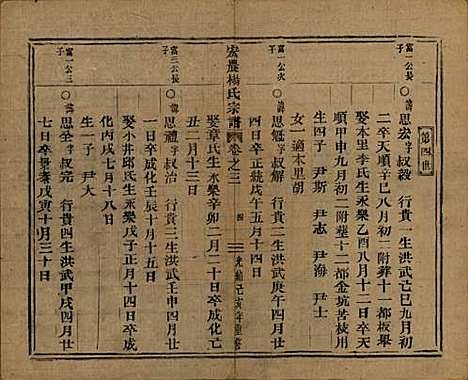 第四世
富一公長子
○諱思宏字叔毅 行貴一生洪武己巳九月初
二卒天順辛巳八月初二附葬十一都板舉
娶本里李氏生永樂乙酉八月十二日卒天
順甲申九月初二附墓十二都金坑苦枝用
生四子 尹斯 尹志 尹海 尹士
女一適本里胡
富一公次子
○諱思魁字叔 行貴二生洪武庚午四月廿
四日卒正統戊午五月十四日
宏農楊氏宗譜 卷之三 四 光緒己亥年重修
娶章氏生永樂辛卯二月二十日卒成化己
丑二月十三日
富三公長子
○諱思禮字叔治 行貴三生洪武壬申四月廿
一日卒成化壬辰十月十五日
娶小井邱氏生永樂戊子正月十四日卒成
化丙戌七月十八日
生一子 尹大
富一公三子
○諱思忠字叔完 行貴四生洪武甲戌四月廿
七日卒景泰戊寅十月三十日